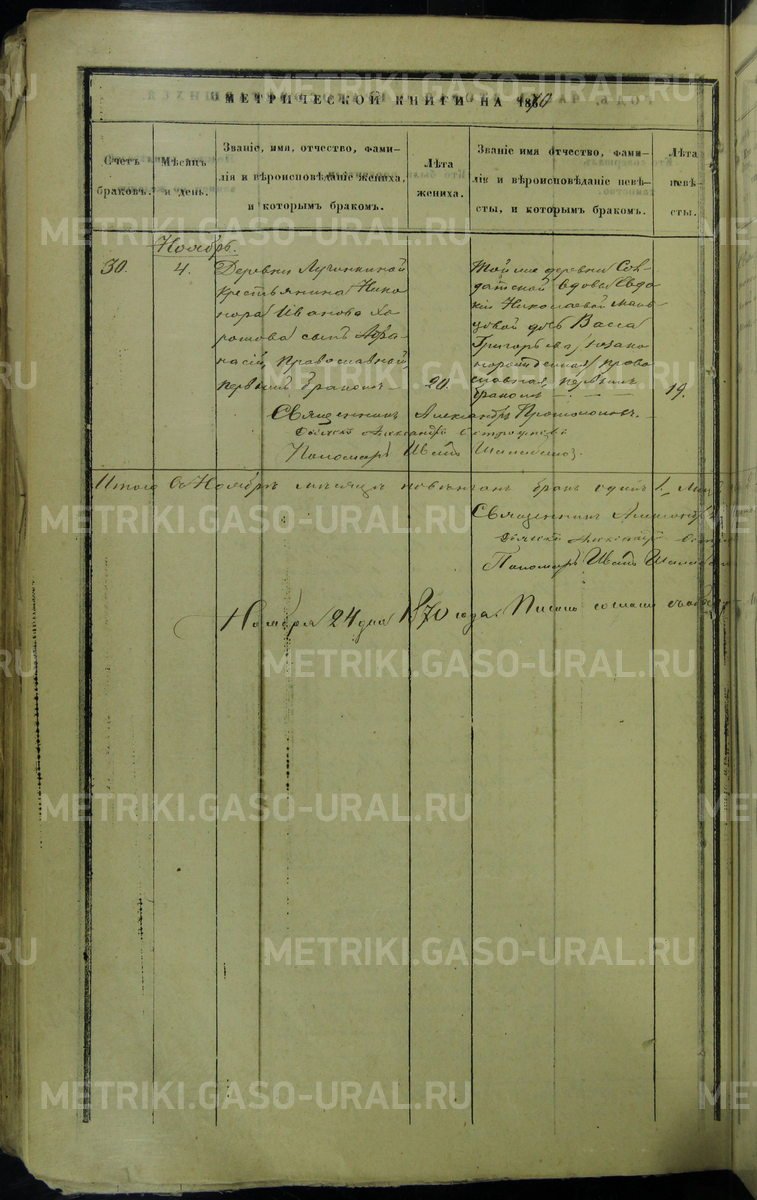 МЕТРИЧЕСКОЙ КНИГИ НА 1870
Счетъ браковъ.
Мѣсяцъ и день.
Званіе, имя, отчество, фами-
лія и вѣроисповѣданіе жениха,
и которымъ бракомъ.
Лѣта жениха.
Званіе имя отчество, фами-
лія и вѣроисповѣданіе невѣ-
сты, и которымъ бракомъ.
Лѣта невѣ-
сты.
Ноябрь.
30.
4.
Деревни Лучинкиной
крестьянина Ника
нора Иванова Хо
рошова сынъ Афа
насій, православный,
первымъ бракомъ
20.
Той же деревни Сол-
датской вдовы Евдо
кіи Николаевой
дочь Васса
Григорьева,
православная, первымъ
бракомъ
19.
Священникъ Александръ
Александръ
Пономарь Иванъ
Итого въ Ноябрѣ мѣсяцѣ повѣнчанъ бракъ одинъ 1.
Священникъ Александръ
Александръ
Пономарь Иванъ
Ноября 24 дня 1870 года. Писано согласно
METRIKI.GASO-URAL.RU